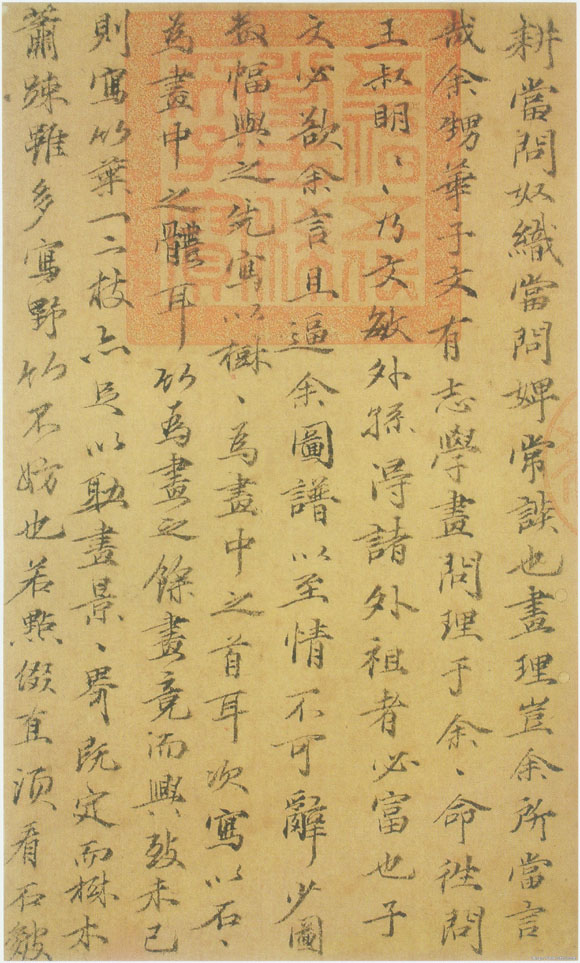 耕當問奴織當問婢常談也畫理豈余所當言
哉余甥華子文有志學畫問理于余、命往問
王叔明、、乃文敏外孫得諸外祖者必富也子
文必欲余言且逼余圖譜以至情不可辭少圖
數幅與之先寫以樹、為畫中之首耳次寫以石、
為畫中之體耳竹爲畫之餘畫竟而興致未已
則寫竹葉一二枝亦足以助畫景、界既定而樹木
蕭踈雖多寫野竹不妨也若點綴直須看石皴